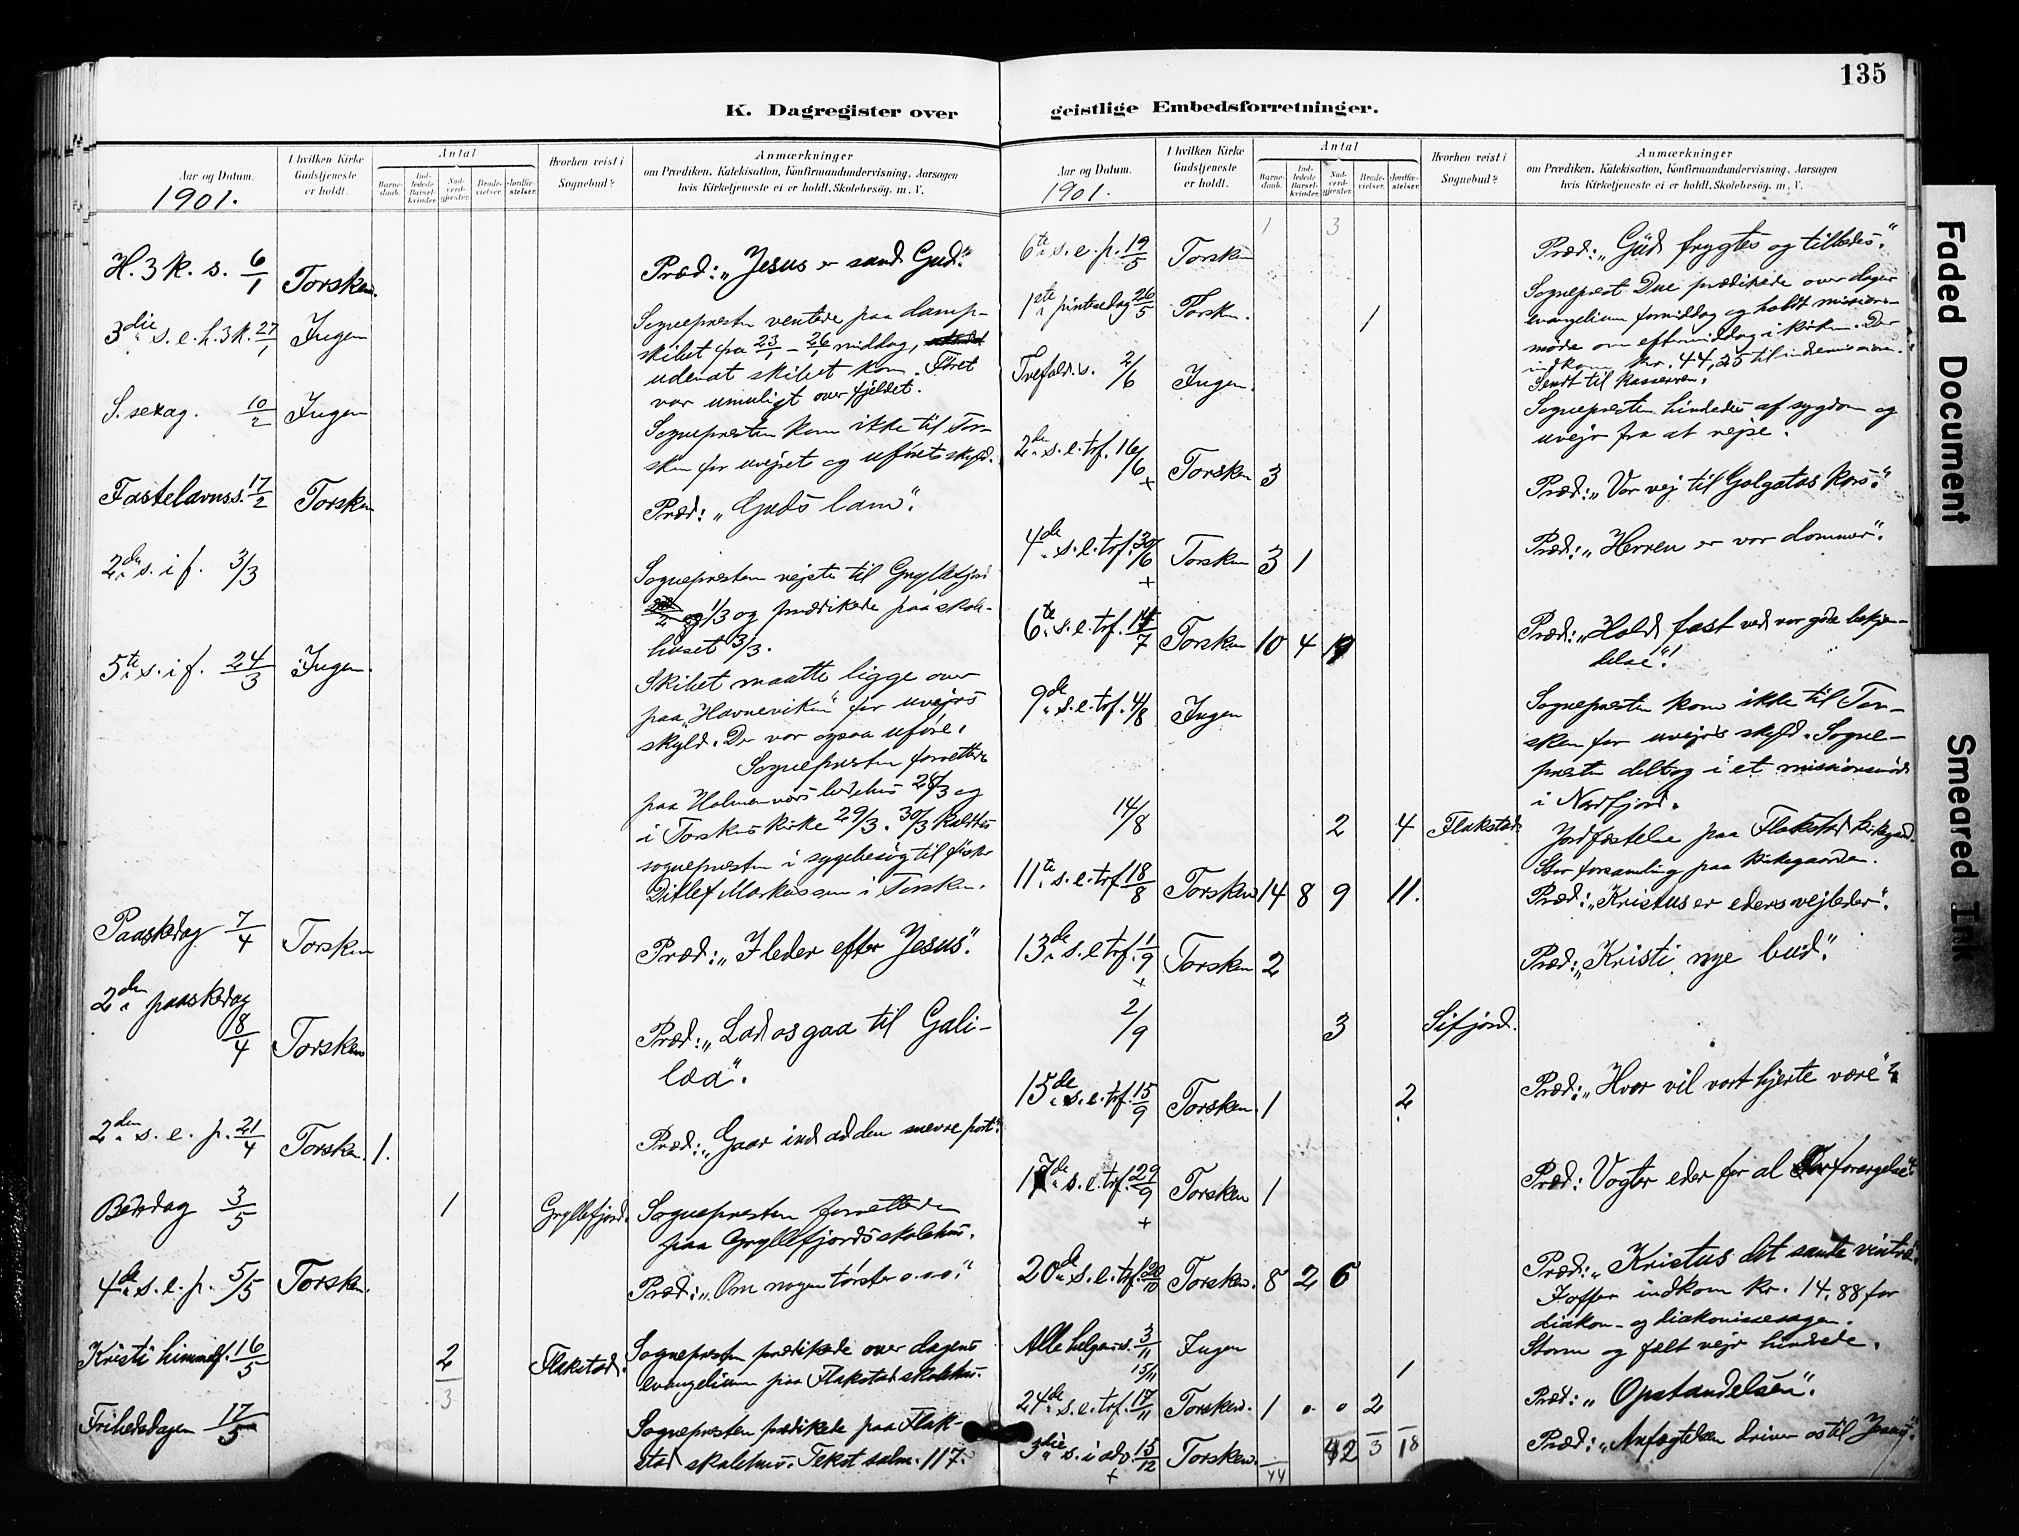 135
K. Dagregister over
geistlige Embedsforretninger.
Aar og Datum.
1901.
I hvilken Kirke
Gudstjeneste
er holdt.
Antal
Barne-
daab.
Ind-
ledede
Barsel-
kvinder.
Nad-
verd-
gjester.
Brude-
vielser.
Jordfæ-
stelser.
Hvorhen reist i
Sognebud?
Anmærkninger
om Prædiken, Katekisation, Konfirmandundervisning, Aarsagen
hvis Kirketjeneste ei er holdt, Skolebesøg. m. V.
H. 3 k. s. 6/1 Torsken.
Præd: „Jesus er sand Gud."
3die s. e. h. 3 k. 27/1 Ingen
Sognepresten ventede paa damp-
skibet fra 23/1 – 26/1 middag,
uden at skibet kom. Føret
var umuligt over fjeldet.
S. sexag. 10/2 Ingen
Sognepresten kom ikke til Tor-
sken for uvejrets og uførets skyld.
Fastelavnss. 17/2 Torsken
Præd: „Guds lam".
2den s. i f. 3/3
Sognepresten rejste til Gryllefjord
1/3 og prædikede paa skole-
huset 3/3.
5te s. i f. 24/3 Ingen.
Skibet maatte ligge over
paa „Havneviken" for uvejrs
skyld. Der var ogsaa uføre.
Sognepresten forrettede
paa Holmenværs bedehus 28/3 og
i Torskens kirke 29/3. 30/3 kaldtes
sognepresten i sygebesøg til fisker
Ditlef Markussen i Torsken.
Paaskedag 7/4 Torsken
Præd: „I leder efter Jesus".
2den paaskedag
8/4 Torsken
Præd: „Lad os gaa til Gali-
læa".
2den s. e. p. 21/4 Torsken. 1.
Præd: „Gaar ind ad den snevre port".
Bededag 3/5 1 Gryllefjord.
Sognepresten forrettede
paa Gryllefjords skolehus.
4de s. e. p. 5/5 Torsken.
Præd: „Om nogen tørster o.s.v."
Kristi himmelf. 16/5 2 Flakstad.
Sognepresten prædikede over dagens
evangelium paa Flakstad skolehus.
3
Frihedsdagen 17/5
Sognepresten prædikede paa Flak-
stad skolehus. Tekst salm. 117.
Aar og Datum.
1901.
I hvilken Kirke
Gudstjeneste
er holdt.
Antal
Barne-
daab.
Ind-
ledede
Barsel-
kvinder.
Nad-
verd-
gjester.
Brude-
vielser.
Jordfæ-
stelser.
Hvorhen reist i
Sognebud?
Anmærkninger
om Prædiken, Katekisation, Konfirmandundervisning, Aarsagen
hvis Kirketjeneste ei er holdt, Skolebesøg. m. V.
1 3
6te s. e. p. 19/5 Torsken
Præd: „Gud frygtes og tilbedes."
1ste pintsedag 26/5 Torsken. 1
Sogneprest Due prædikede over dagens
evangelium formiddag og holdt missions-
møde om eftermiddag i kirken. Der
indkom kr. 44,25 til indremissionen.
Sendt til kasserren.
Trefold. s. 2/6 Ingen.
Sognepresten hindredes af sygdom og
uvejr fra at rejse.
2den s. e. tref. 16/6 + Torsken 3
Præd: „Vor vej til Golgatas kors."
4de s. e. tref. 30/6 + Torsken 3 1
Præd: „Herren er vor dommer".
6te s. e. tref. 14/7 Torsken 10 4
Præd: „Hold fast ved vor gode bekjen-
delse"!
9de s. e. tref. 4/8 Ingen
Sognepresten kom ikke til Tor-
sken for uvejrs skyld. Sogne-
presten deltog i et missionsmøde
i Nordfjord.
14/8 2 4 Flakstad.
Jordfæstelse paa Flakstad kirkegaard.
Stor forsamling paa kirkegaarden.
11te s. e. tref. 18/8 Torsken 14 8 9 11.
Præd: „Kristus er eders vejleder".
13de s. e. tref. 1/9 + Torsken 2
Præd: „Kristi nye bud".
2/9 3 Sifjord.
15de s. e. tref. 15/9 Torsken. 1 2
Præd: „Hvor vil vort hjerte være"?
17de s. e. tref. 29/9 + Torsken 1
Præd: Vogter eder for al forargelse".
20de s. e. tref. 20/10 Torsken. 8 2 6
Præd: „Kristus det sande vintræ".
I offer indkom kr. 14.88 for
diakon- og diakonissesagen.
Alle helgens s. 3/11 Ingen
Storm og fælt vejr hindrede.
15/11 1
24de s. e. tref. 17/11 Torsken. 1 0 0 2
Præd: „Opstandelsen".
3die s. i adv. 15/12 + Torsken.
Præd: „Anfægtelsen driver os til Jesus".
44 42 3 18
Faded Document
Smeared Ink